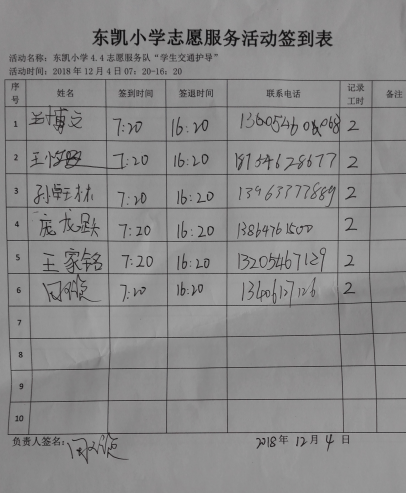 东凯小学志愿服务活动签到表
活动名称：东凯小学4.4志愿服务队“学生交通护导”
活动时间：2018年12月4日07：20-16：20
序号 姓名 签到时间 签退时间 联系电话 记录工时 备注
1 博文 7:20 16:20 2
2 王 7:20 16:20 18754628677 2
3 孙 林 7:20 16:20 13963777889 2
4 庞龙跃 7:20 16:20 13864761500 2
5 王家铭 7:20 16:20 13205467129 2
6 7:20 16:20 13406127126 2
7
8
9
10
负责人签名：
2018年12月4日